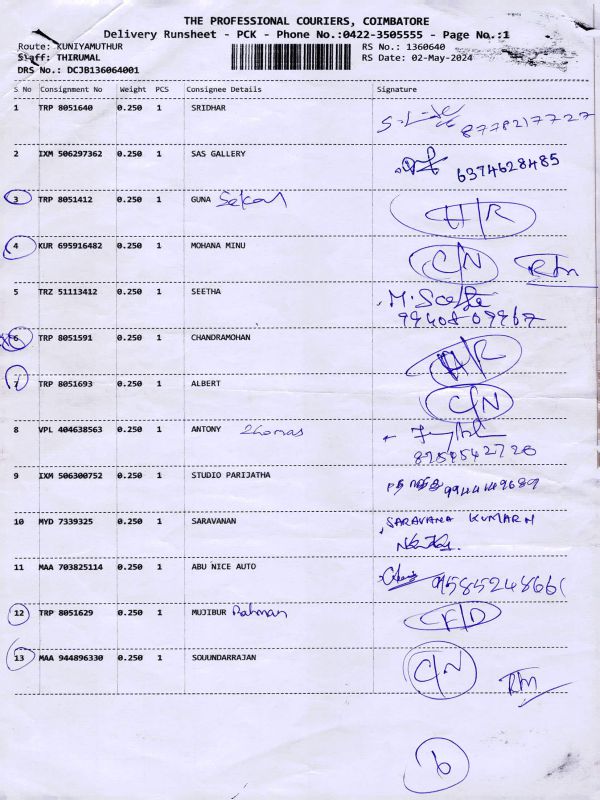 THE PROFESSIONAL COURIERS, COIMBATORE
Delivery Runsheet - PCK - Phone No.:0422-3505555 - Page No.:1
Route: KUNIYAMUTHUR RS No.: 1360640
Staff: THIRUMAL RS Date: 02-May-2024
DRS No.: DCJB136064001
S No Consignment No Weight PCS Consignee Details Signature
1 TRP 8051640 0.250 1 SRIDHAR 8778217727
2 IXM 506297362 0.250 1 SAS GALLERY 6374628485
3 TRP 8051412 0.250 1 GUNA Sekar H/R
4 KUR 695916482 0.250 1 MOHANA MINU C/N
5 TRZ 51113412 0.250 1 SEETHA M. Seetha
99408 09967
6 TRP 8051591 0.250 1 CHANDRAMOHAN H/R
7 TRP 8051693 0.250 1 ALBERT C/N
8 VPL 404638563 0.250 1 ANTONY Thomas
9 IXM 506300752 0.250 1 STUDIO PARIJATHA 9944449689
10 MYD 7339325 0.250 1 SARAVANAN SARAVANA KUMAR N
11 MAA 703825114 0.250 1 ABU NICE AUTO
12 TRP 8051629 0.250 1 MUJIBUR Rahman
13 MAA 944896330 0.250 1 SOUUNDARRAJAN C/N
6